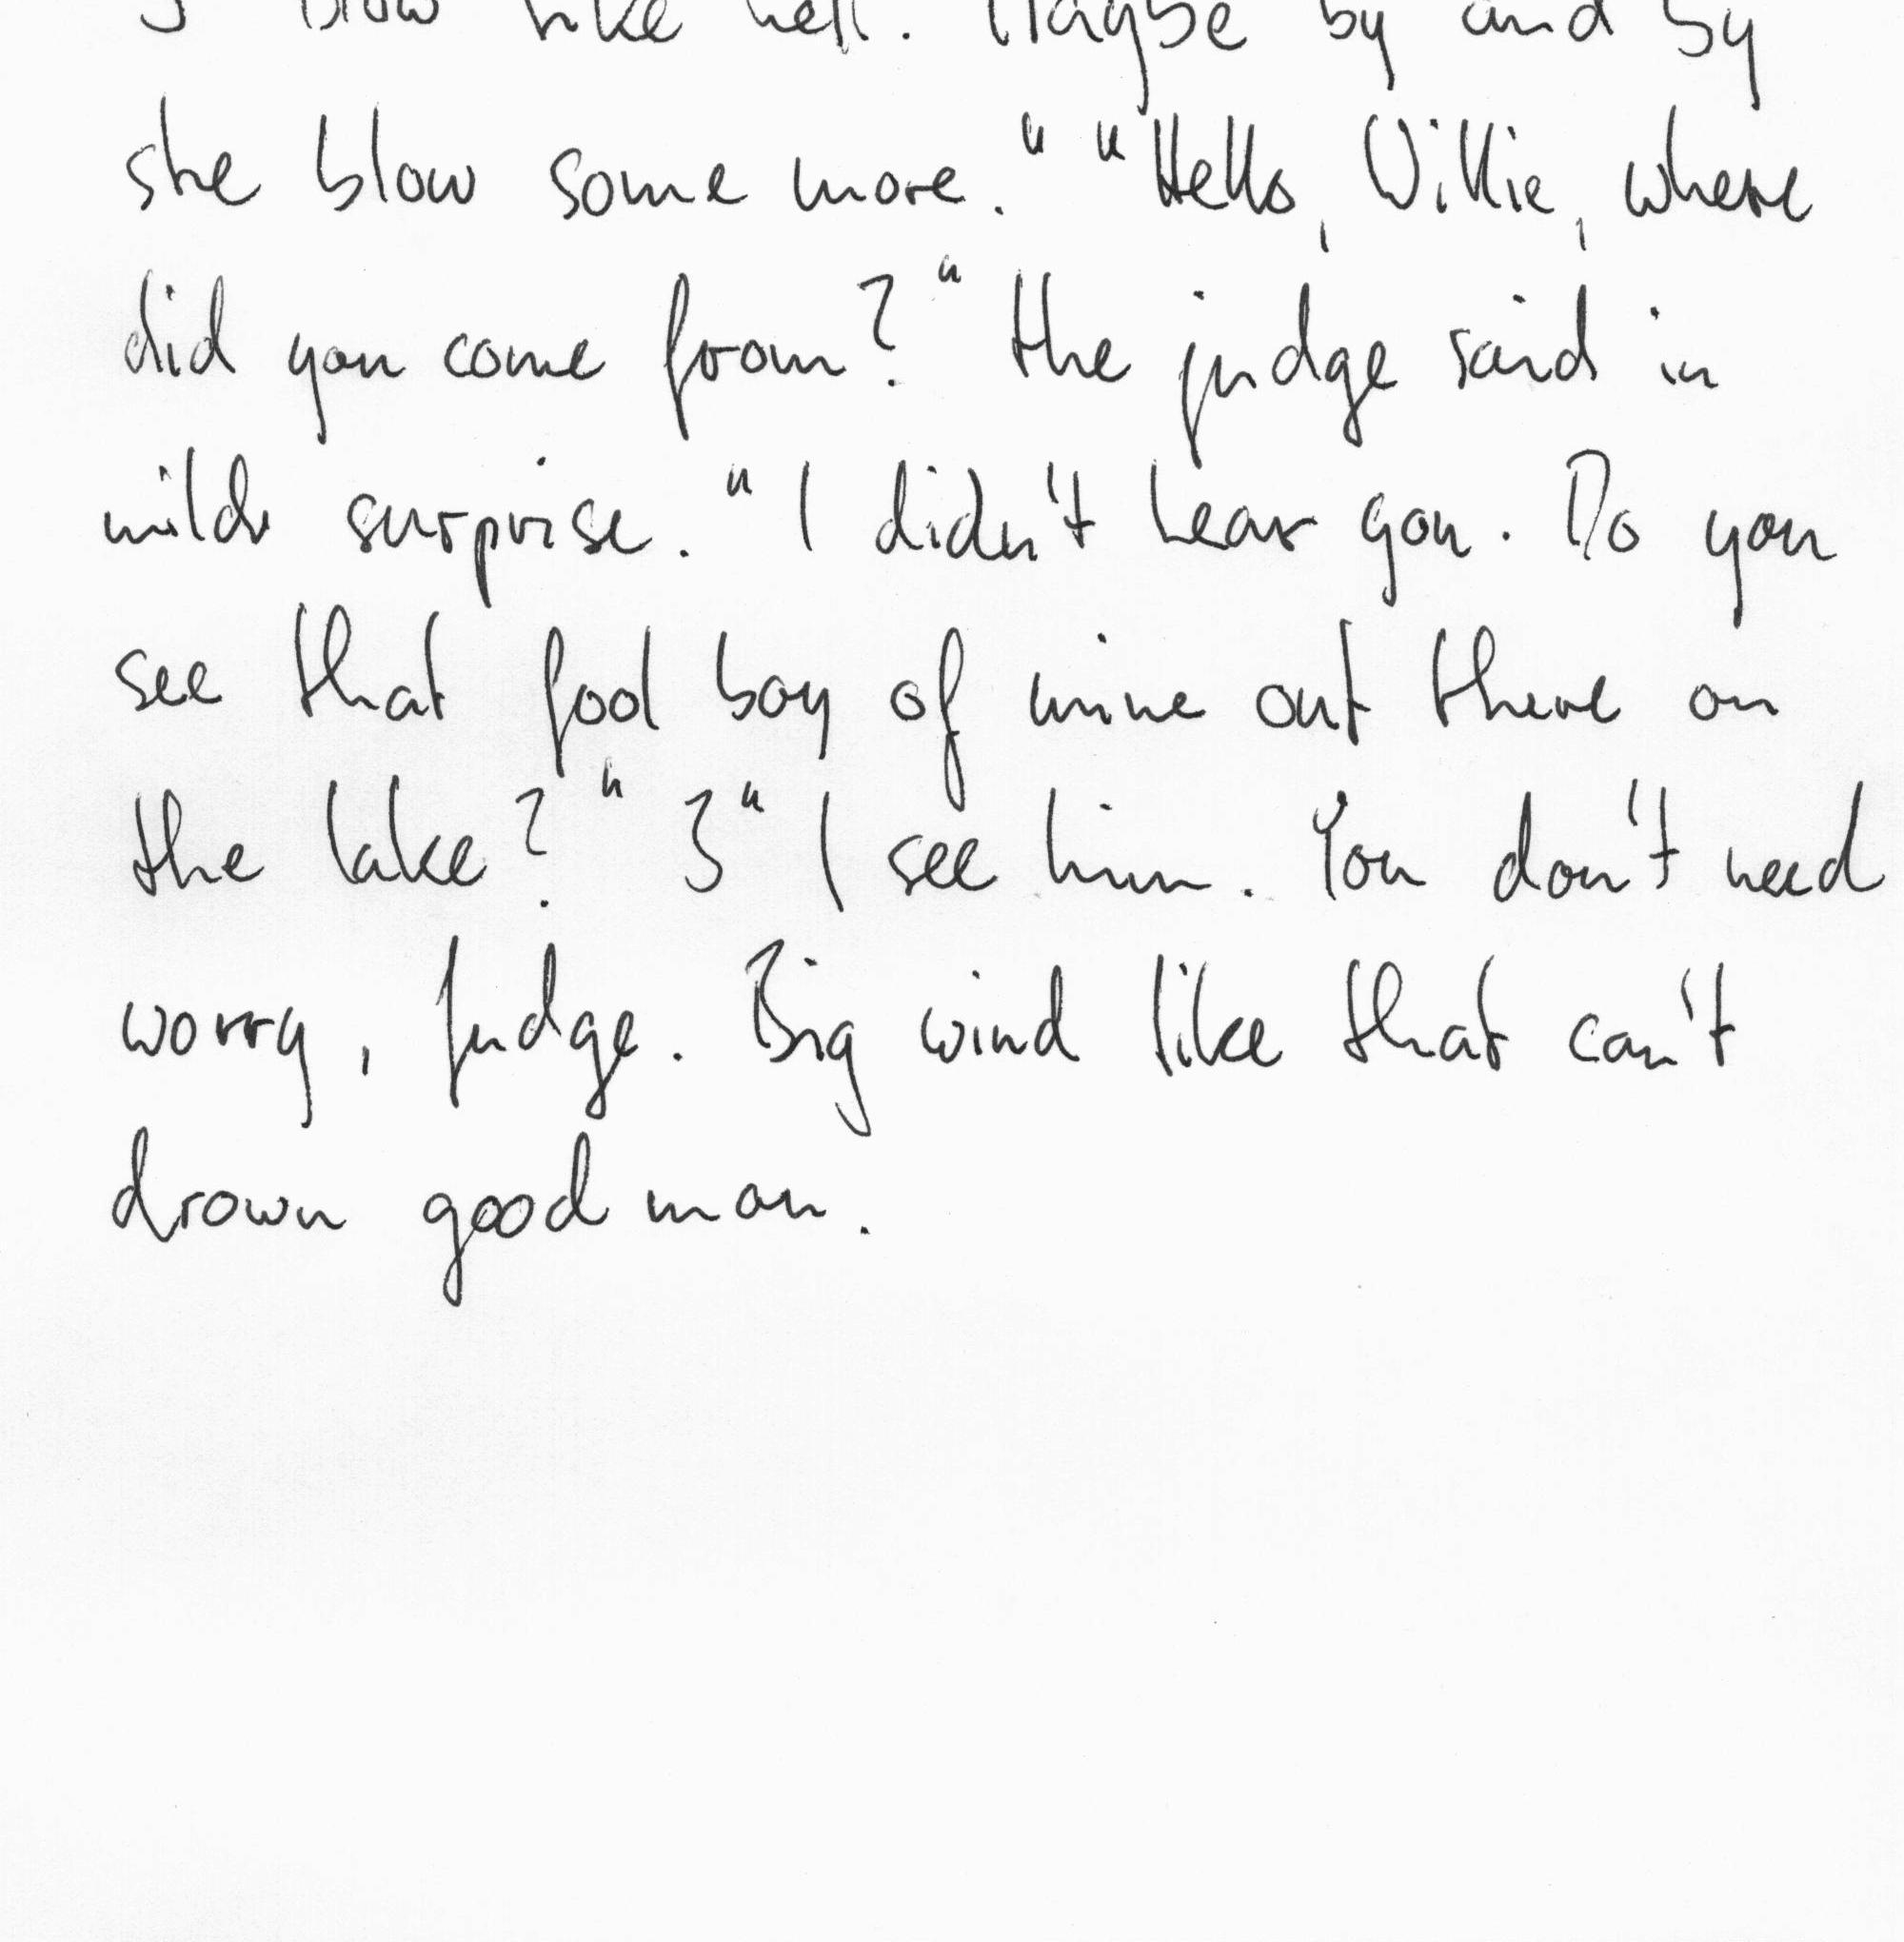 3 blow like hell. Maybe by and by
she blow some more." "Hello, Willie, where
did you come from?" the judge said in
mild surprise. "I didn't hear you. Do you
see that fool boy of mine out there on
the lake?" 3" I see him. You don't need
worry, judge. Big wind like that can't
drown good man.